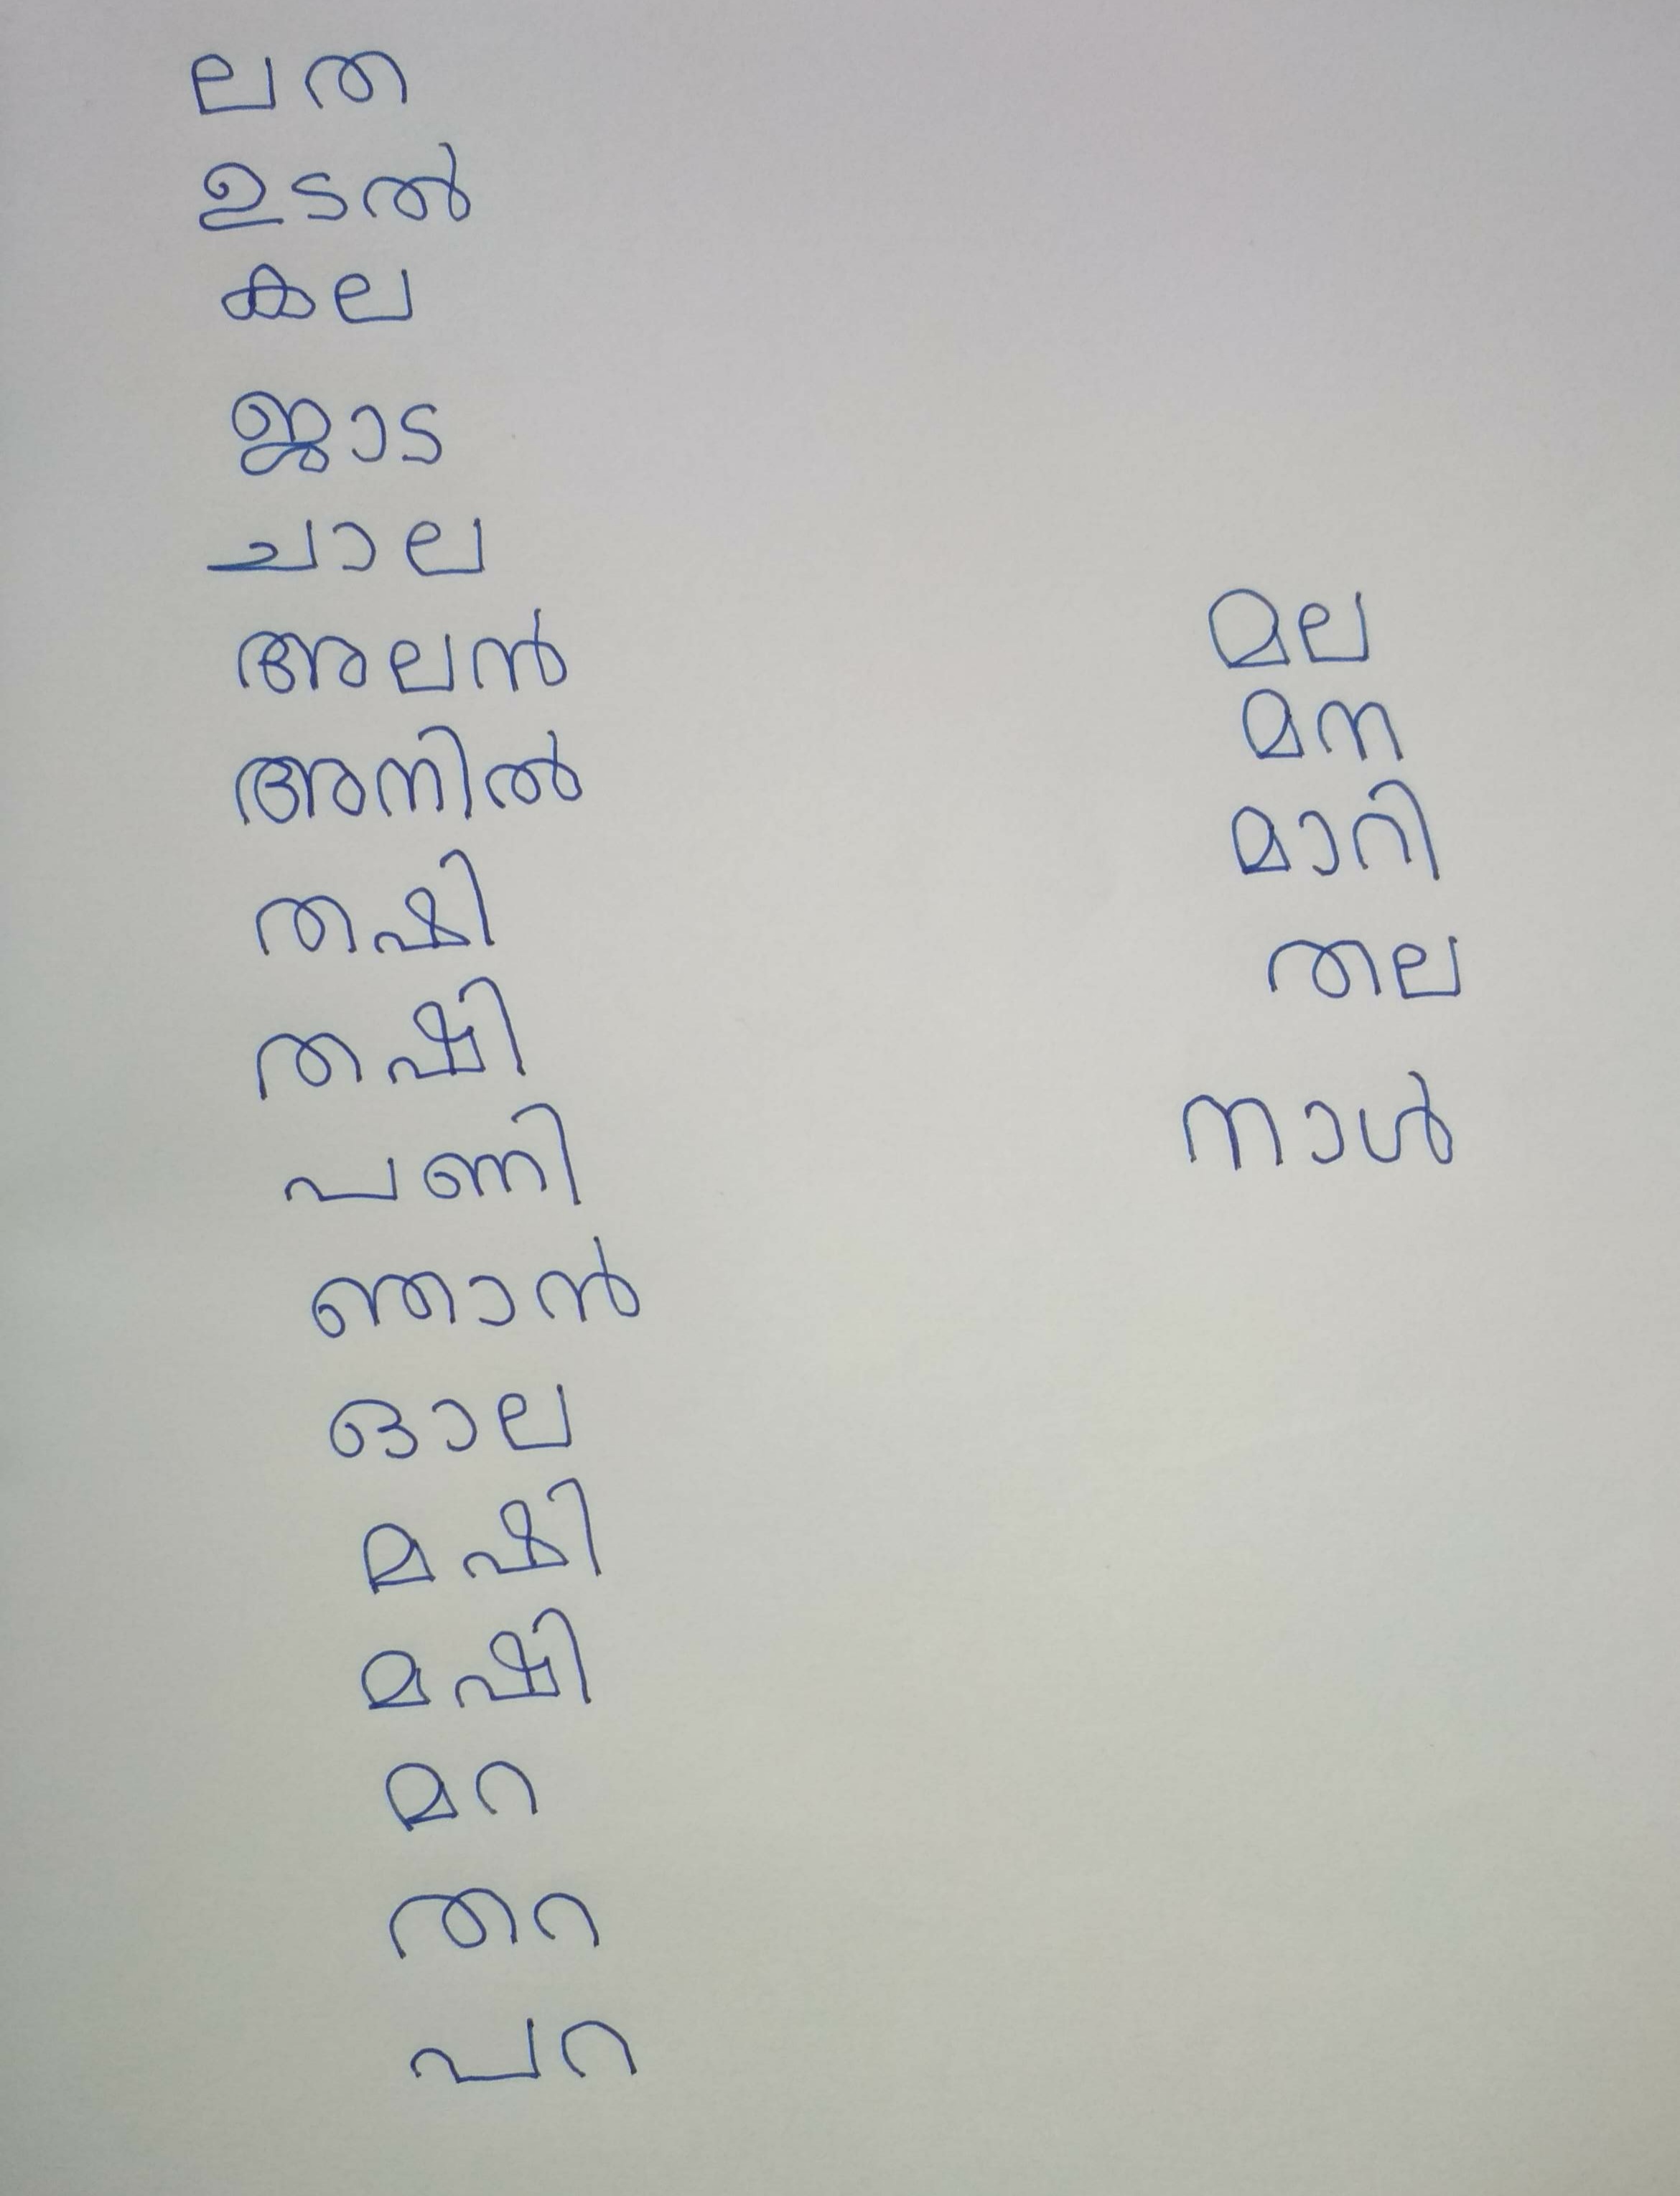 ലത
ഉടൽ
കല
ജാട
ചാല
അലൻ
അനിൽ
തഷി
തഷി
പണി
ഞാൻ
ഓല
മഷി
മഷി
മറ
തറ
പറ
മല
മന
മാറി
തല
നാൾ